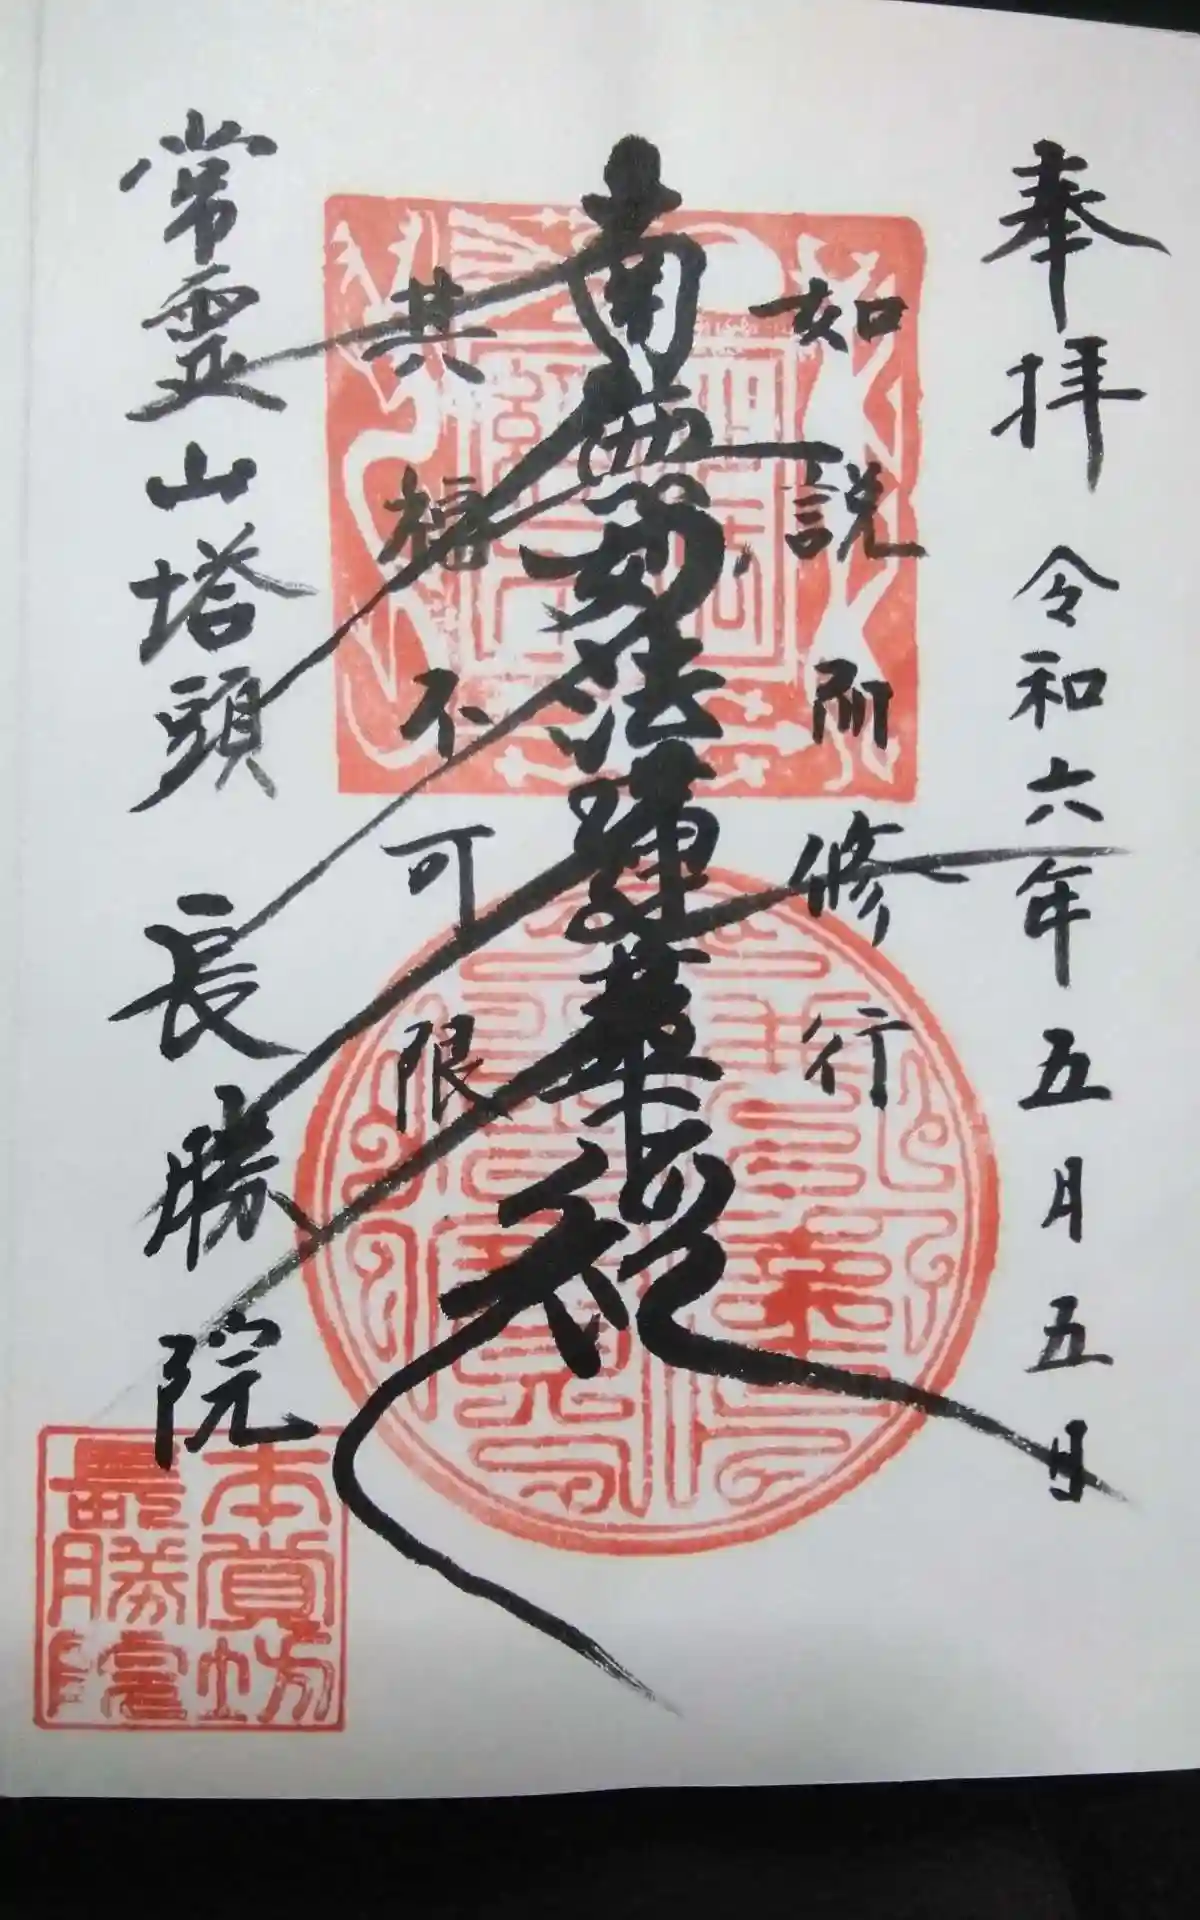 奉拝 令和六年五月五日
如説所修行
南無妙法蓮華経
其福不可限
常霊山塔頭 長勝院
本賞坊
長勝院